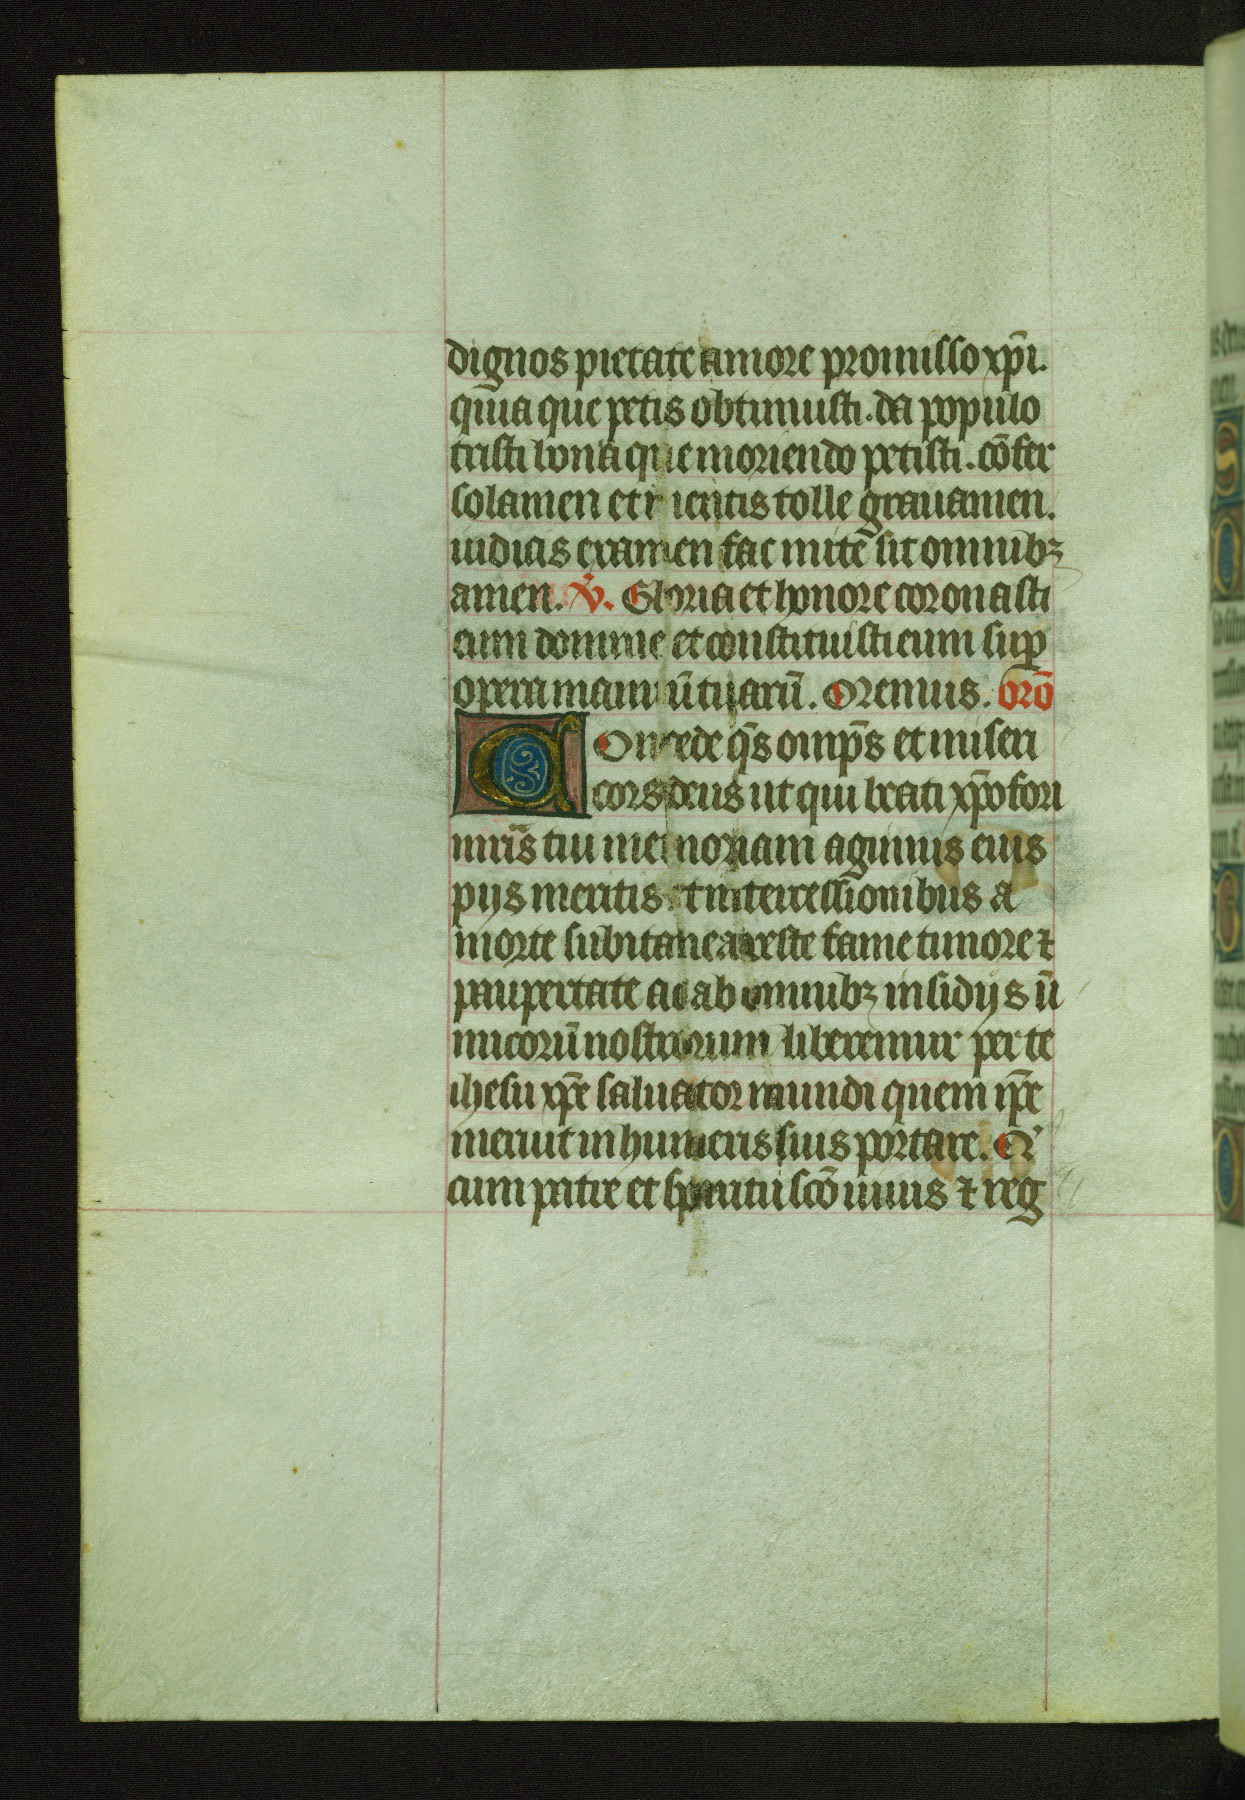 dignos pietate amore promisso xp̄i.
quia que petis obtinuisti. da populo
tristi bona que moriendo petisti. cōfer
solamen et mentis tolle grauamen.
iudicis examen fac mitē sit omnibꝫ
amen. V̄. Gloria et honore coronasti
eum domine et constituisti eum sup̄
opera manuū tuarū. Oremus. orō
Concede qs̄ omp̄s et miseri
cors deus ut qui beati xp̄ofori
mr̄is tui memoriam agimus eius
pijs meritis et intercessionibus a
morte subitanea peste fame timore ⁊
paupertate ac ab omnibꝫ insidijs īi
micorū nostrorum liberemur per te
ihesu xp̄e saluator mundi quem ip̄e
meruit in humeris suis portare. Q'
cum patre et spiritu scō uiuis ⁊ reg